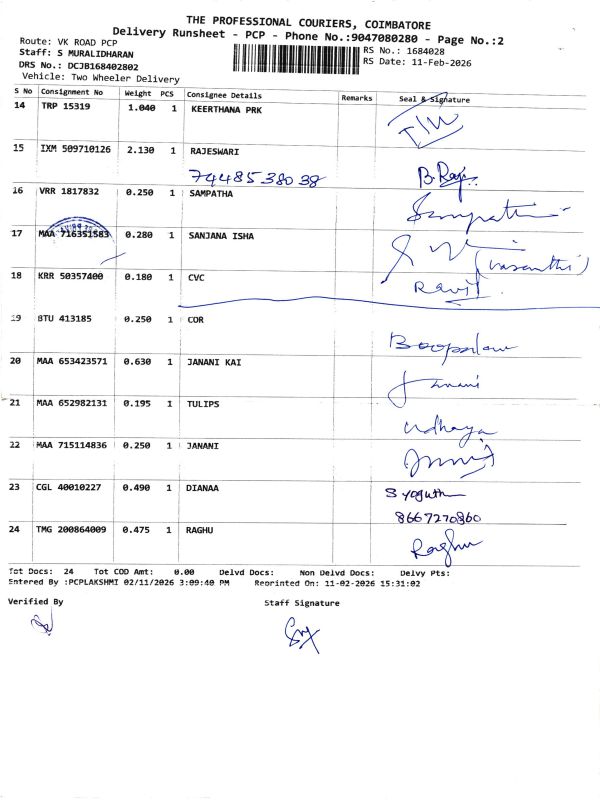 THE PROFESSIONAL COURIERS, COIMBATORE
Delivery Runsheet - PCP - Phone No.:9047080280 - Page No.:2
Route: VK ROAD PCP
Staff: S MURALIDHARAN
DRS No.: DCJB168402802
Vehicle: Two Wheeler Delivery
RS No.: 1684028
RS Date: 11-Feb-2026
S No Consignment No Weight PCS Consignee Details Remarks Seal & Signature
14 TRP 15319 1.040 1 KEERTHANA PRK
15 IXM 509710126 2.130 1 RAJESWARI
7448538038 B.Raji
16 VRR 1817832 0.250 1 SAMPATHA
Sampath
17 MAA 716351583 0.280 1 SANJANA ISHA
(Vasanthi)
18 KRR 50357400 0.180 1 CVC Ravi
19 BTU 413185 0.250 1 COR
Boopalan
20 MAA 653423571 0.630 1 JANANI KAI
Janani
21 MAA 652982131 0.195 1 TULIPS
Udhaya
22 MAA 715114836 0.250 1 JANANI
23 CGL 40010227 0.490 1 DIANAA
8667270360
24 TMG 200864009 0.475 1 RAGHU
Raghu
Tot Docs: 24 Tot COD Amt: 0.00 Delvd Docs: Non Delvd Docs: Delvy Pts:
Entered By :PCPLAKSHMI 02/11/2026 3:09:40 PM Reprinted On: 11-02-2026 15:31:02
Verified By Staff Signature